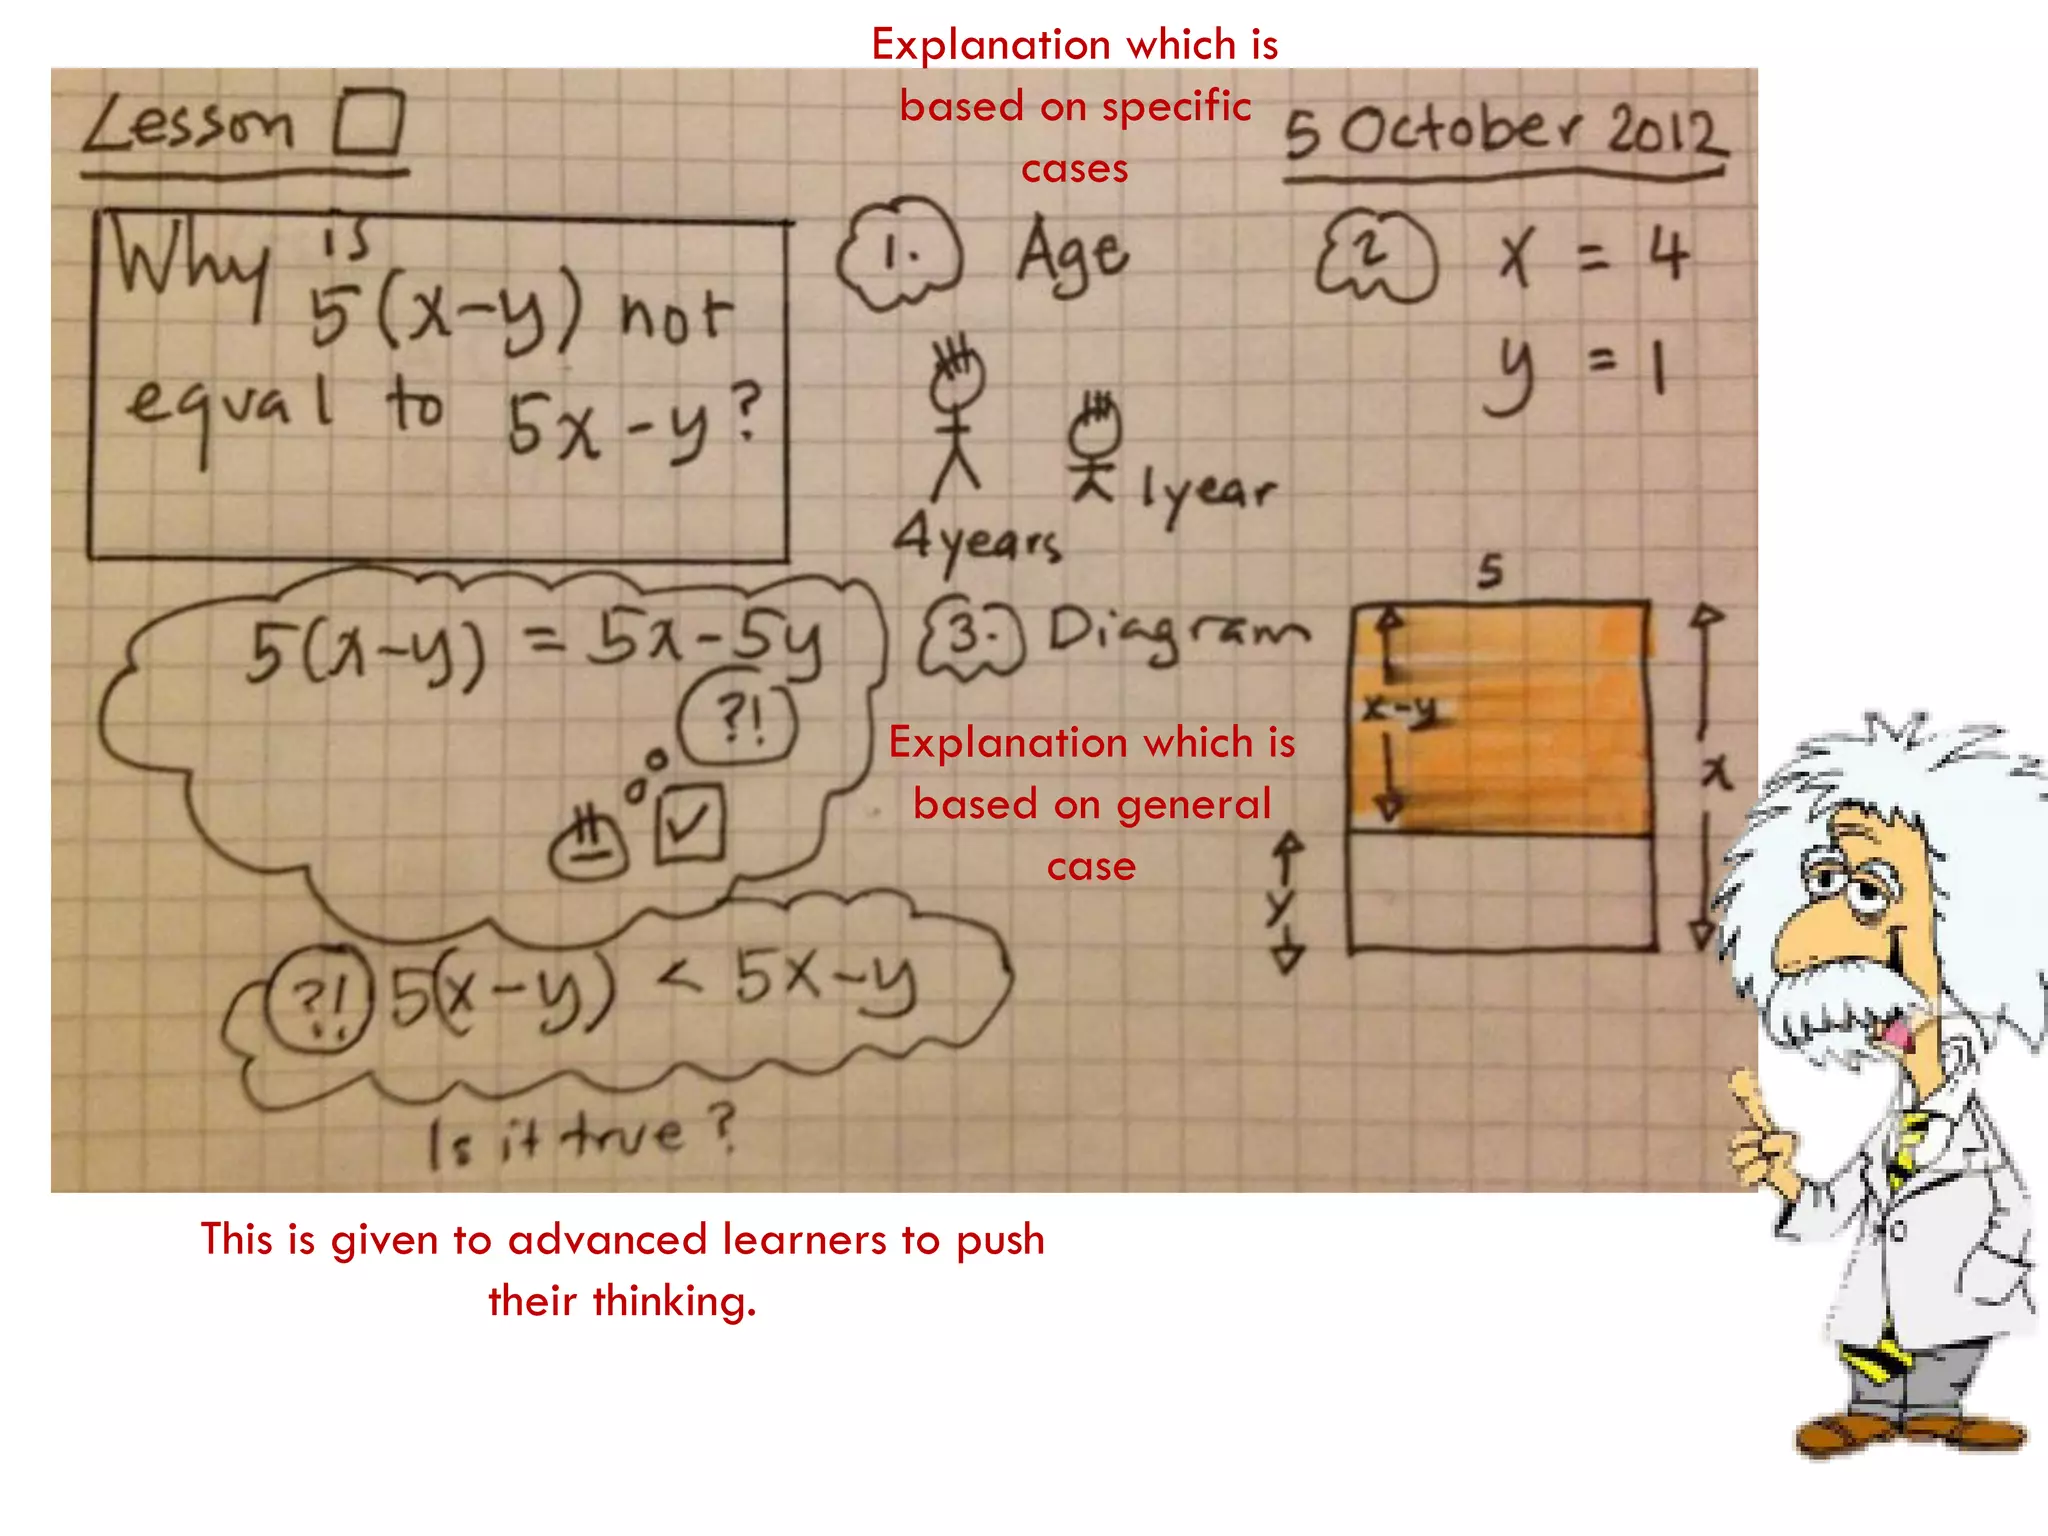 Explanation which is
based on specific
cases
Lesson
5 October 2012
Why is
5(x-y) not
equal to 5x-y?
1. Age
4 years
1 year
2 x = 4
y = 1
5(x-y) = 5x-5y
?!
3. Diagram
5
x-y
x
y
Explanation which is
based on general
case
?! 5(x-y) < 5x-y
Is it true?
This is given to advanced learners to push
their thinking.